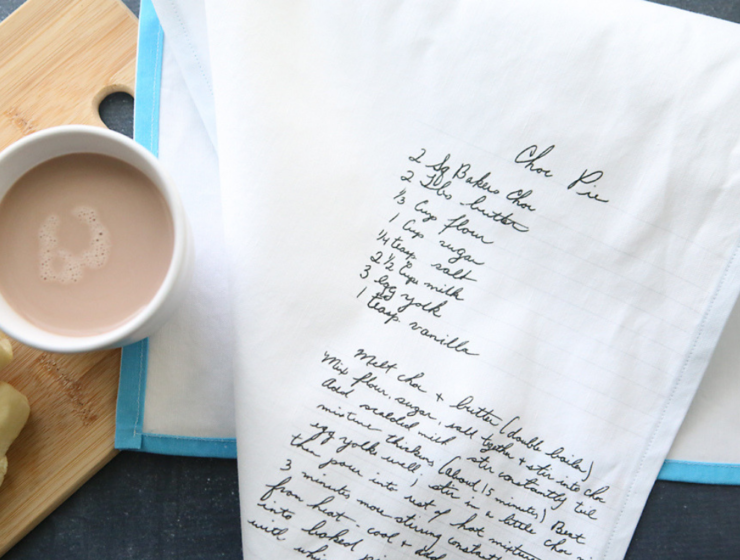 Choc Pie
2 Sq Bakers Choc
2 Tbs butter
1/3 Cup flour
1 Cup sugar
1/4 teasp salt
2 1/2 Cups milk
3 egg yolk
1 teasp vanilla
Melt choc + butter (double boiler)
Mix flour, sugar, salt togethe + stir into choc
Add scalded milk stir constantly til
mixture thickens (about 15 minutes) Beat
egg yolks well, stir in a little choc
then pour into rest of hot mixture
3 minutes more stirring constant
from heat - cool + add
into baked pi
with whi